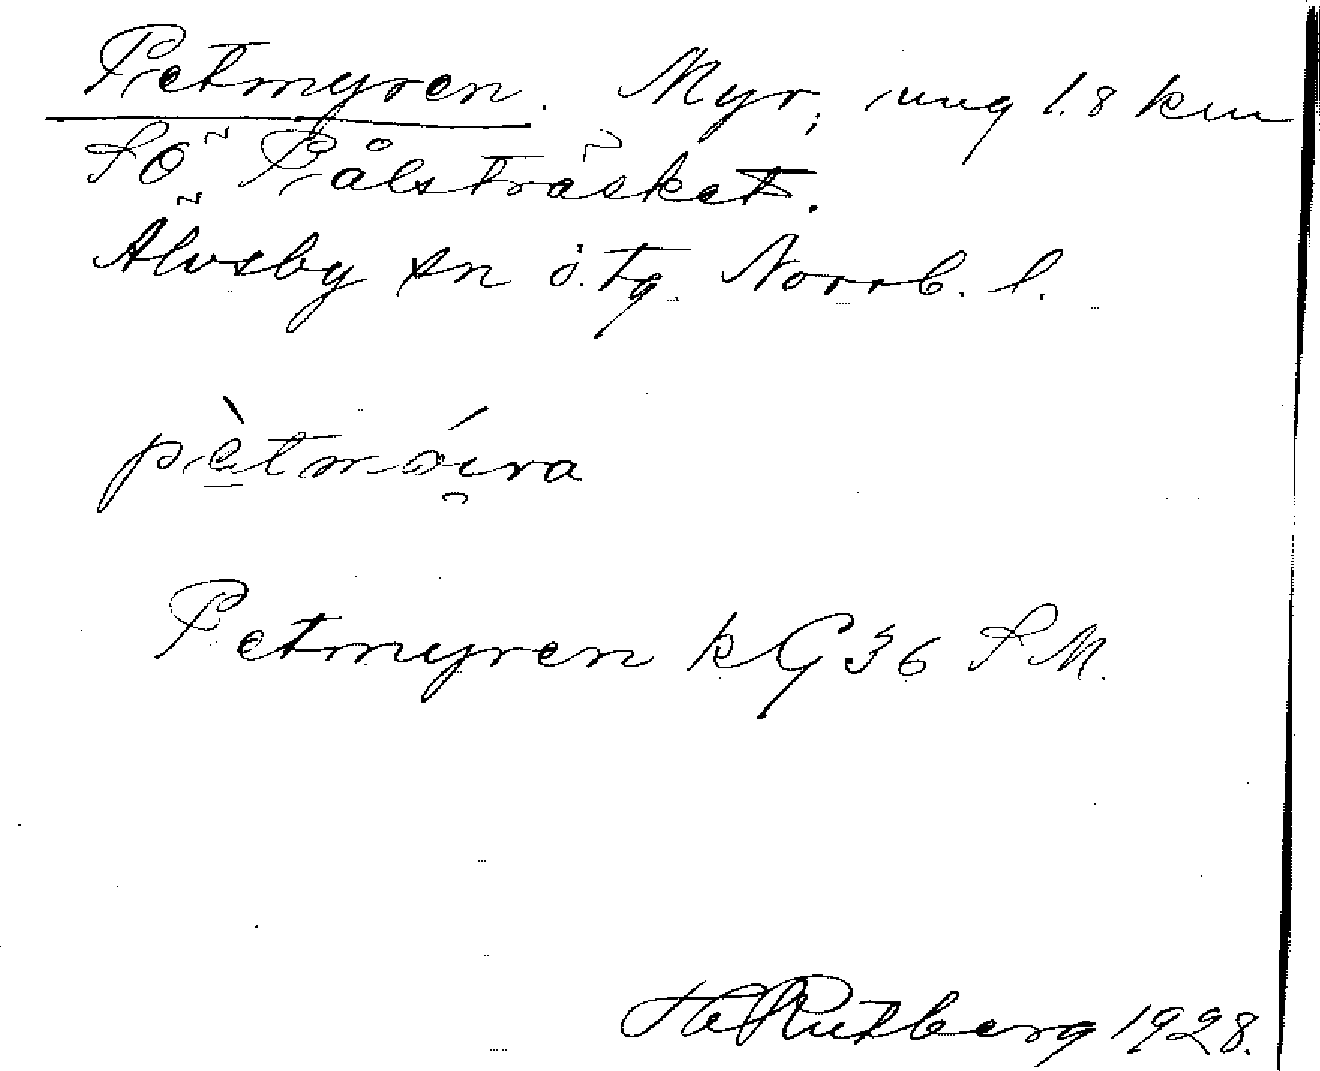 Petmyren. Myr, ung 1.8 km
SÖ Pålsträsket.
Älvsby sn ö. tg. Norrb. l.
pètmóira
Petmyren kG36 SM.
Rutberg 1928.